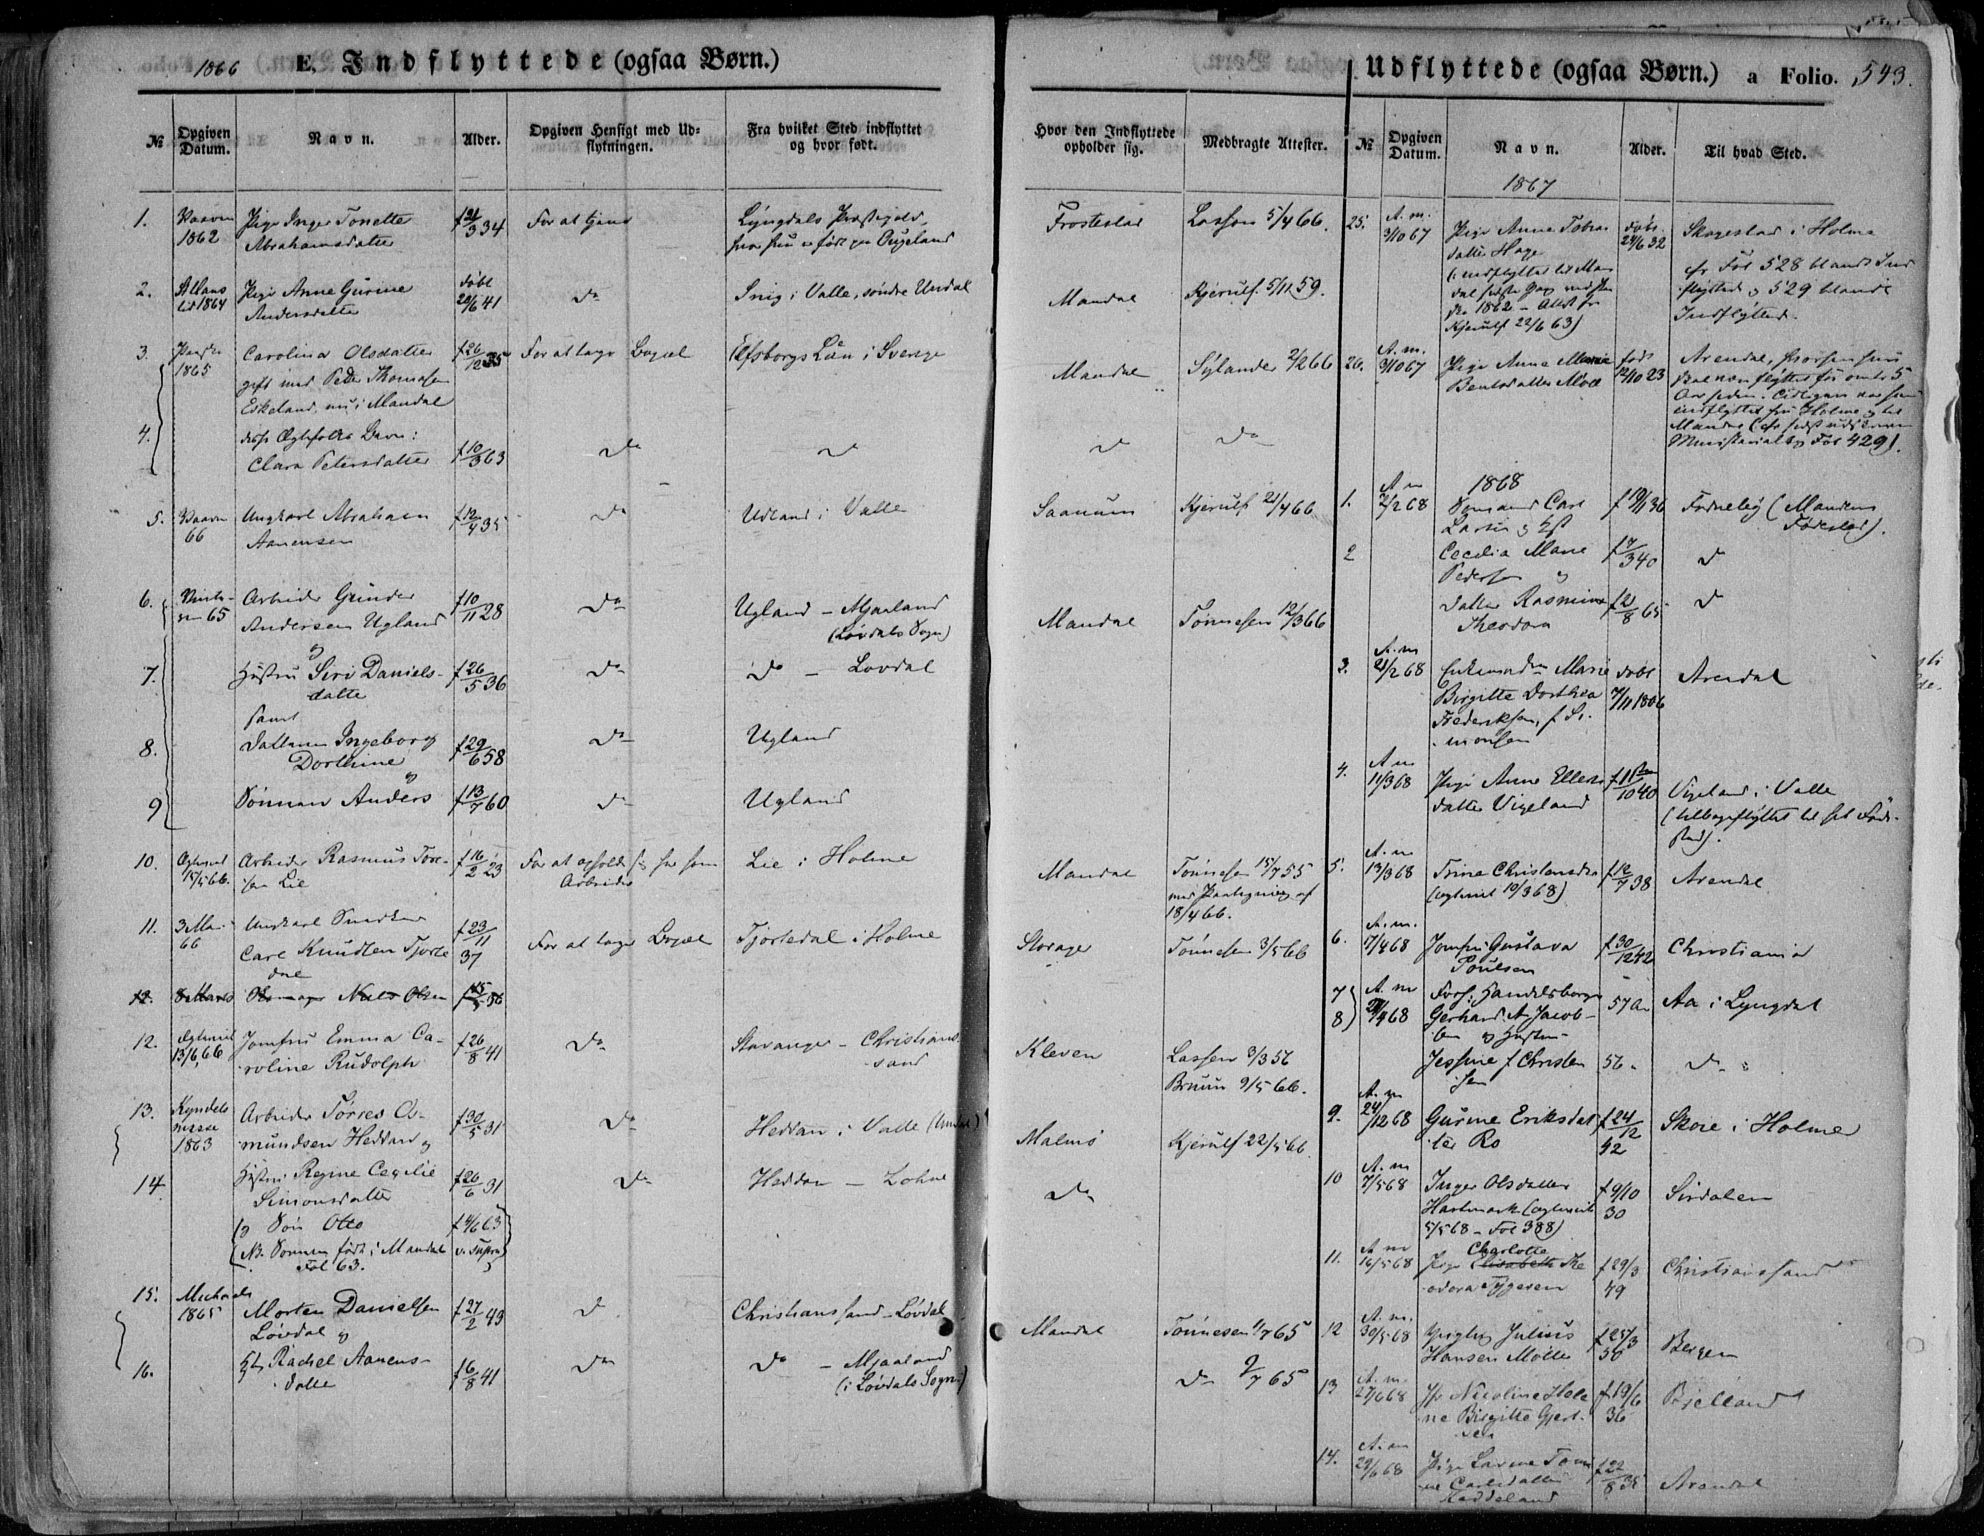 1866 E. Indflyttede (ogsaa Børn.)
№ Opgiven Datum. Navn. Alder. Opgiven Hensigt med Udflytningen. Fra hvilket Sted indflyttet og hvor født.
1. Vaaren 1862 Pige Inger Tonette Abrahamsdatter f 21/3 34 For at tjene Lyngdals Præstegjeld, hvor hun er født paa
2. 1864 Pige Anne Gurine Andersdatter døbt 20/6 41 do Snig i Valle, søndre Undal
3. 1865 Carolina Olsdatter f 26/12 35 For at tage Bopæl Elfsborgs Län i Sverige
gift med Peder Thomasen
Eskeland, nu i Mandal
4. Ægtefolks Barn:
Clara Petersdatter f 10/3 63 do do
5. Vaaren 66 Ungkarl Abraham Aanensen f 12/4 35 do Udland i Valle
6. 65 Arbeider Gunder Andersen Ugland f 10/11 28 do Ugland – Mjaaland (Løvdals Sogn)
7. Hustru Siri Danielsdatter f 26/5 36 do do – Løvdal
samt
8. Datteren Ingeborg Dorthine f 29/6 58 do Ugland
9 Sønnen Anders f 13/7 60 do Ugland
10. 15/5 66. Arbeider Rasmus Lie f 16/2 23 For at opholde sig her som Arbeider Lie i Holme
11. 3 Mai 66 Ungkarl Carl Knudsen f 23/11 37 For at tage Bopæl Tjortedal i Holme
12. Olsen
12. 13/6 66 Jomfru Emma Caroline Rudolph f 26/8 41 do Stavanger – Christianssand
13. Kyndelsmesse 1863 Arbeider Tørres Osmundsen Heddan og f 30/5 31 do Heddan i Valle (Undal)
14. Hustru Regine Cecilie Simonsdatter f 26/6 31 do Heddan – Lohne
og Søn Otto f 4/6 63
(NB. Sønnen født i Mandal
Fol 63.
15. Michaeli 1865 Morten Danielsen Løvdal og f 27/2 43 do Christianssand – Løvdal
16. Rachel Aanensdatter f 6/8 41 do do – Mjaaland (i Løvdals Sogn)
Udflyttede (ogsaa Børn.) a Folio. 543.
Hvor den Indflyttede opholder sig. Medbragte Attester. № Opgiven Datum. Navn. Alder. Til hvad Sted.
Frostestad Lassen 5/4 66.
Mandal Kjerulf 5/11 59.
Mandal Sylander 2/2 66
do do
Saanum Kjerulf 21/4 66
Mandal Tønnesen 12/3 66
Mandal Tønnesen 15/7 55
med Paategning af
18/4 66.
Storage Tønnesen 3/5 66
Kleven Lassen 3/3 56
Bruun 9/5 66.
Malmø Kjerulf 22/5 66.
do
Mandal Tønnesen 1/7 65
do 9/7 65
1867
25. A.m. 3/10 67 Pige Anne Tobiasdatter Hage døbt 24/6 32 Skogestad i Holme
(indflyttet til Mandal 1862 – Attest fra Kjerulf 22/6 63)
cfr Fol 528 blandt Indflyttede og 529 blandt Indflyttede.
26. A.m. 3/10 67 Pige Anne Marie Bentsdatter født 12/10 23 Arendal, hvorhen hun
flyttet for omtr 5
Aar siden.
indflyttet fra Holme og til
Mandal
Ministerialbog Fol 429).
1868
1. A.m 2/2 68 Sømand Carl Larsen og Hst f 19/1 36 (Mandens Fødested).
2 Cecilia Marie Pedersen og f 7/3 40 do
Datter Rasmine Theodora f 2/8 65 do
3. A.m 21/2 68 Marie Birgitte Dorthea Frederiksen, f. Simonsen døbt 7/11 1806 Arendal
4. A.m 11/3 68 Pige Anne Ellensdatter Vigeland 10 40 Vigeland i Valle
(tilbageflyttet til sit Fødested).
5. A.m 13/3 68 Trine Christensdtr f 12/7 38 Arendal
(ægteviet 10/3 68)
6. A.m. 7/4 68 Jomfru Gustava Poulsen f 30/12 42 Christiania
7 8 A.m 4 68 Forh. Handelsborger Gerhard A. Jacobsen og Hustru 57 Aar Aa i Lyngdal
Jessine f. Christensen 56 do
9. A.m 24/12 68 Gurine Eriksdatter Ro f 24/12 42 Skoie i Holme
10 A.m 7/5 68 Inger Olsdatter Hartmark (ægteviet 5/5 68 – Fol 388) f 9/10 30 Sirdalen
11. A.m 16/5 68 Pige Charlotte Elisabeth Theodora f 29/3 49 Christianssand
12 A.m. 30/5 68 Julius Hansen Molle f 25/3 50 Bergen
13 A.m. 27/6 68 Nicoline Helene Birgitte Gjertsen f 19/6 36 Bjelland
14. A.m 29/6 68 Pige Carlsdatter f 22/8 Arendal